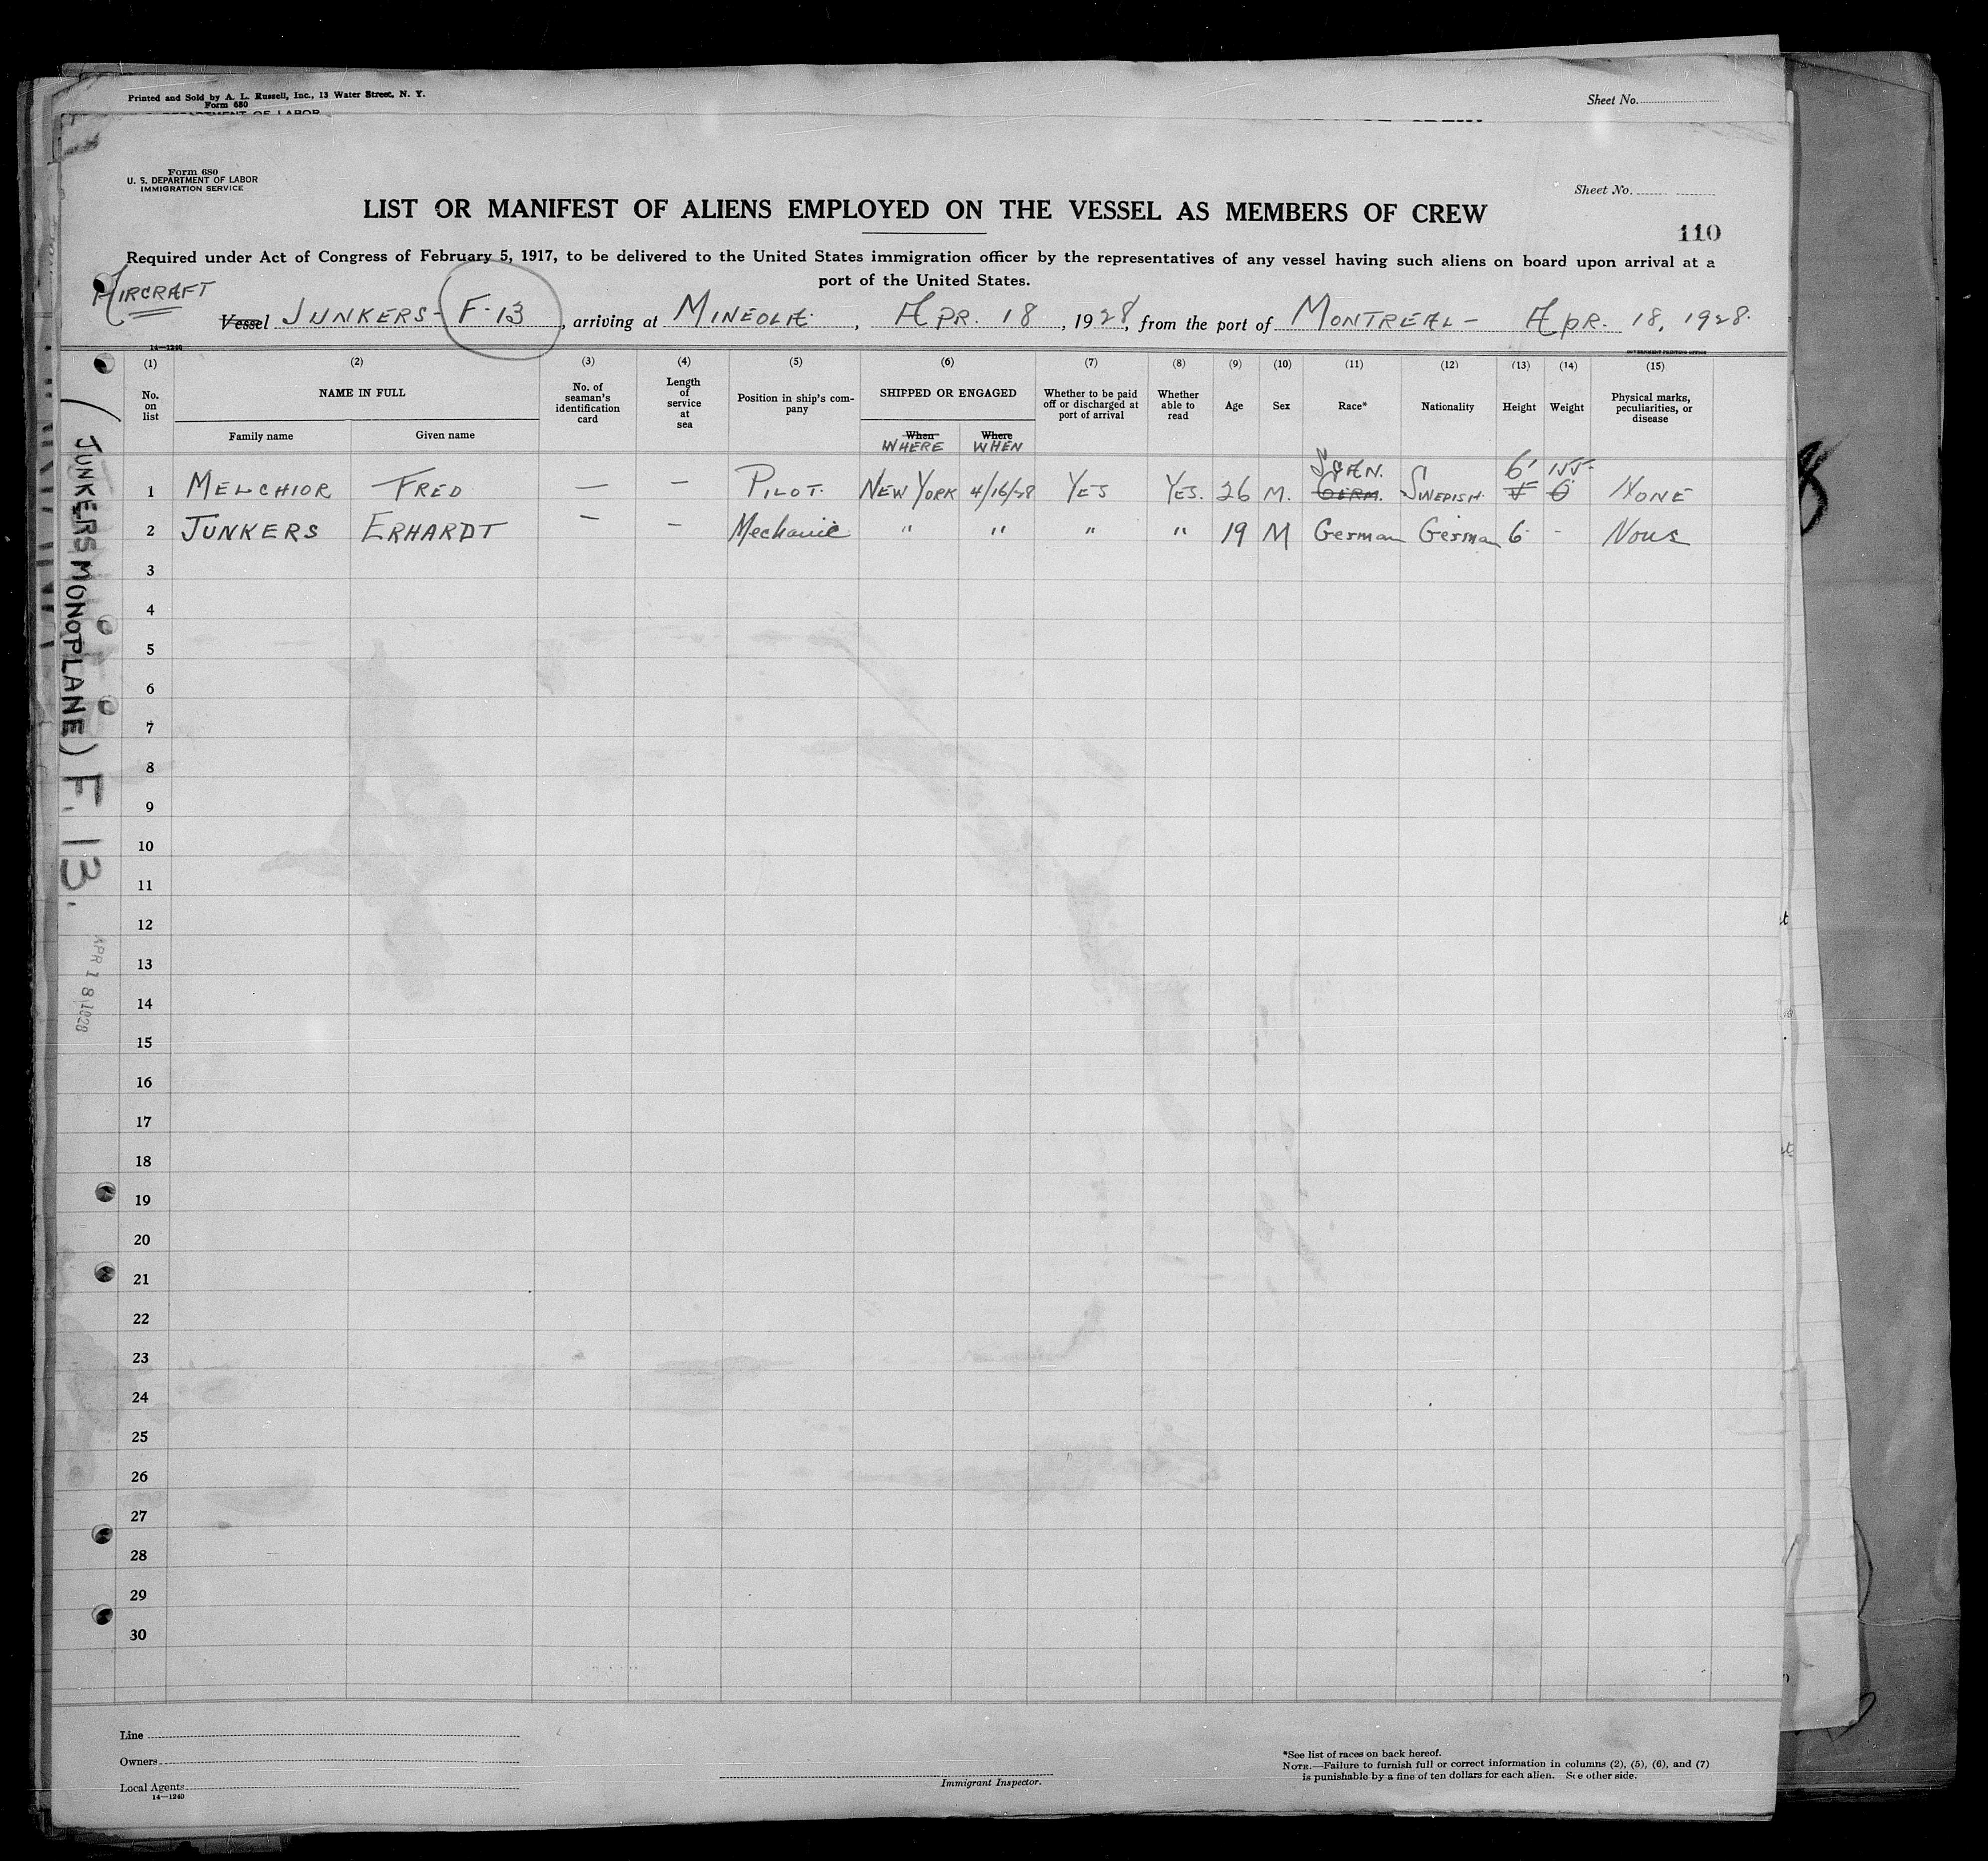 Printed and Sold by A. L. Russell, Inc., 13 Water Street, N. Y.
Form 680
Sheet No.
Form 680
U. S. DEPARTMENT OF LABOR
IMMIGRATION SERVICE
Sheet No.
LIST OR MANIFEST OF ALIENS EMPLOYED ON THE VESSEL AS MEMBERS OF CREW
110
Required under Act of Congress of February 5, 1917, to be delivered to the United States immigration officer by the representatives of any vessel having such aliens on board upon arrival at a
port of the United States.
AIRCRAFT
Vessel JUNKERS - F-13, arriving at MINEOLA, APR. 18, 1928, from the port of MONTREAL - APR. 18, 1928.
14—1240
(1) (2) (3) (4) (5) (6) (7) (8) (9) (10) (11) (12) (13) (14) (15)
No. on list
NAME IN FULL
Family name
Given name
No. of seaman's identification card
Length of service at sea
Position in ship's company
SHIPPED OR ENGAGED
When
WHERE
Where
WHEN
Whether to be paid off or discharged at port of arrival
Whether able to read
Age
Sex
Race*
Nationality
Height
Weight
Physical marks, peculiarities, or disease
1 MELCHIOR FRED — — PILOT. NEW YORK 4/16/28 YES YES. 26 M. SCAN. GERM. SWEDISH 6' 155 NONE
2 JUNKERS ERHARDT — — Mechanic " " " " 19 M German German 6 - None
3
4
5
6
7
8
9
10
11
12
13
14
15
16
17
18
19
20
21
22
23
24
25
26
27
28
29
30
(JUNKERS MONOPLANE) F. 13.
APR 18 1928
Line
Owners
Local Agents
14—1240
Immigrant Inspector.
*See list of races on back hereof.
NOTE.—Failure to furnish full or correct information in columns (2), (5), (6), and (7)
is punishable by a fine of ten dollars for each alien. See other side.